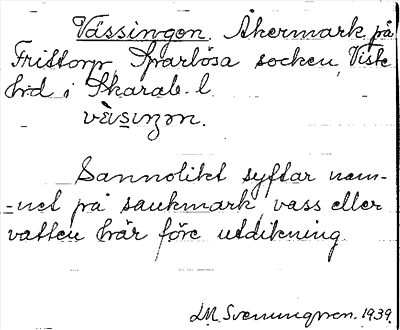 Vässingen. Åkermark på
Fristorp Sparlösa socken, Viste
hrd i Skarab. l.
Sannolikt syftar nam-
-net på sankmark, vass eller
vatten här före utdikning
M. Svenungsson. 1939.